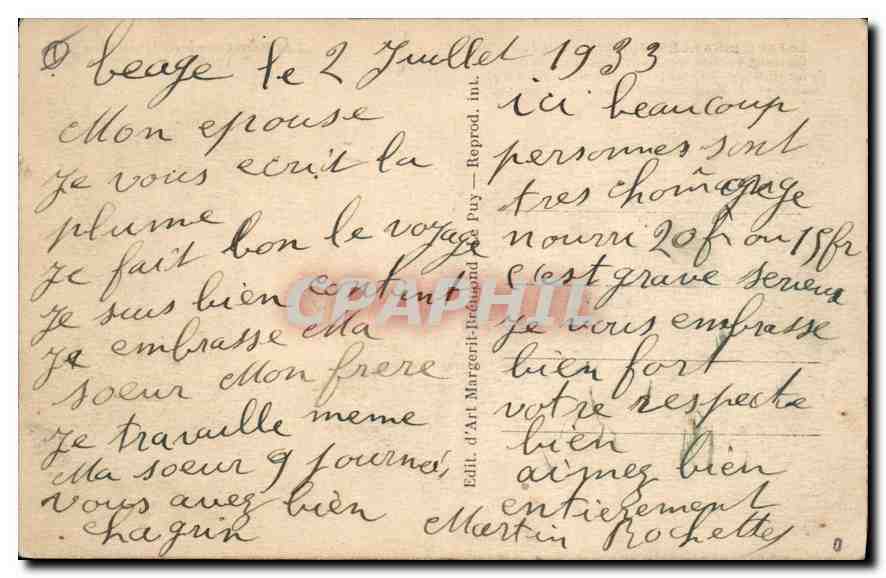 beage le 2 Juillet 1933
Mon epouse
Je vous ecrit la
plume
Je fait bon le voyage
Je suis bien content
Je embrasse Ma
soeur Mon frere
Je travaille meme
Ma soeur 9 journeés
vous avez bien
chagrin
ici beaucoup
personnes sont
tres chomage
nourri 20fr ou 15fr
c'est grave serieux
Je vous embrasse
bien fort
votre respecte
bien
aimez bien
entierement
Martin Rochettes
Edit. d'Art Margerit-Brémond Le Puy — Reprod. int.
CPAPHIL